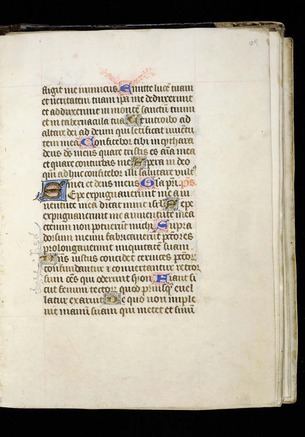 fligit me inimicus. Emitte lucē tuam
et ueritatem tuam ip̄a me deduxerunt
et adduxerunt in montē sanctū tuum
et in tabernacula tua Et introibo ad
altare dei ad deum qui letificat iuuētu
tem meā Confitebor tibi in cythara
deus deus meus quare tristis es aīa mea
et quare conturbas me Spera in deo
qm̄ adhuc confitebor illi salutare uult⁹
mei et deus meus Gl̄a pr̄i. p̄s.
Sepe expugnauerunt me a iu
uentute mea dicat nunc isrl̄ Sepe
expugnauerunt me a iuuentute mea
etenim non potuerunt michi Supra
dorsum meum fabricauerunt pctōres
prolongauerunt iniquitatē suam
Dn̄s iustus concidet ceruices pctōr
confundantur et conuertantur retror
sum oēs qui oderunt syon Fiant si
cut fenum tector quod priusq̄ euel
latur exaruit De quo non imple
uit manū suam qui metet et sinū